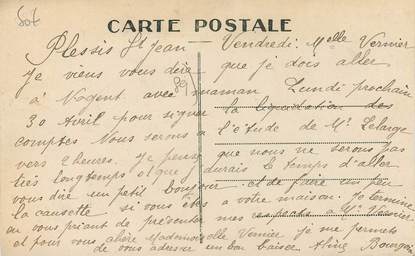 Sot
CARTE POSTALE
Plessis St Jean Vendredi. Melle Vernier
Je viens vous dire que je dois aller
à Nogent avec maman Lundi prochain
30 Avril pour signer la liquidation des
comptes Nous serons à l'étude de Mr Lelarge
vers 2 heures. Je pense que nous ne serons pas
très longtemps et que j'aurais le temps d'aller
vous dire un petit bonjour et de faire un peu
la causette si vous êtes à votre maison. Je termine
en vous priant de présenter mes respects à Mr Vernier
et pour vous chère Mademoiselle Vernier je me permets
de vous adresser un bon baiser Aline Bourgoin